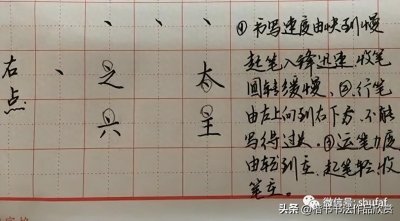 右点
、 、 、
、 之 太
①书写速度由快到慢
起笔入锋迅速、收笔
回转缓慢、②、行笔
由左上向到右下方、不能
写得过头。③运笔力度
由轻到重、起笔轻收
笔重。
微信号: shufaf
头条@楷书书法作品欣赏